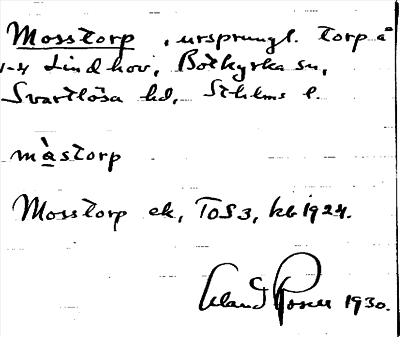 Mosstorp, ursprungl. torp å
1-4 Lindhov, Botkyrka sn,
Svartlösa hd, Sthlms l.
mа̀storp
Mosstorp ek, TOS3, kb 1924.
1930.